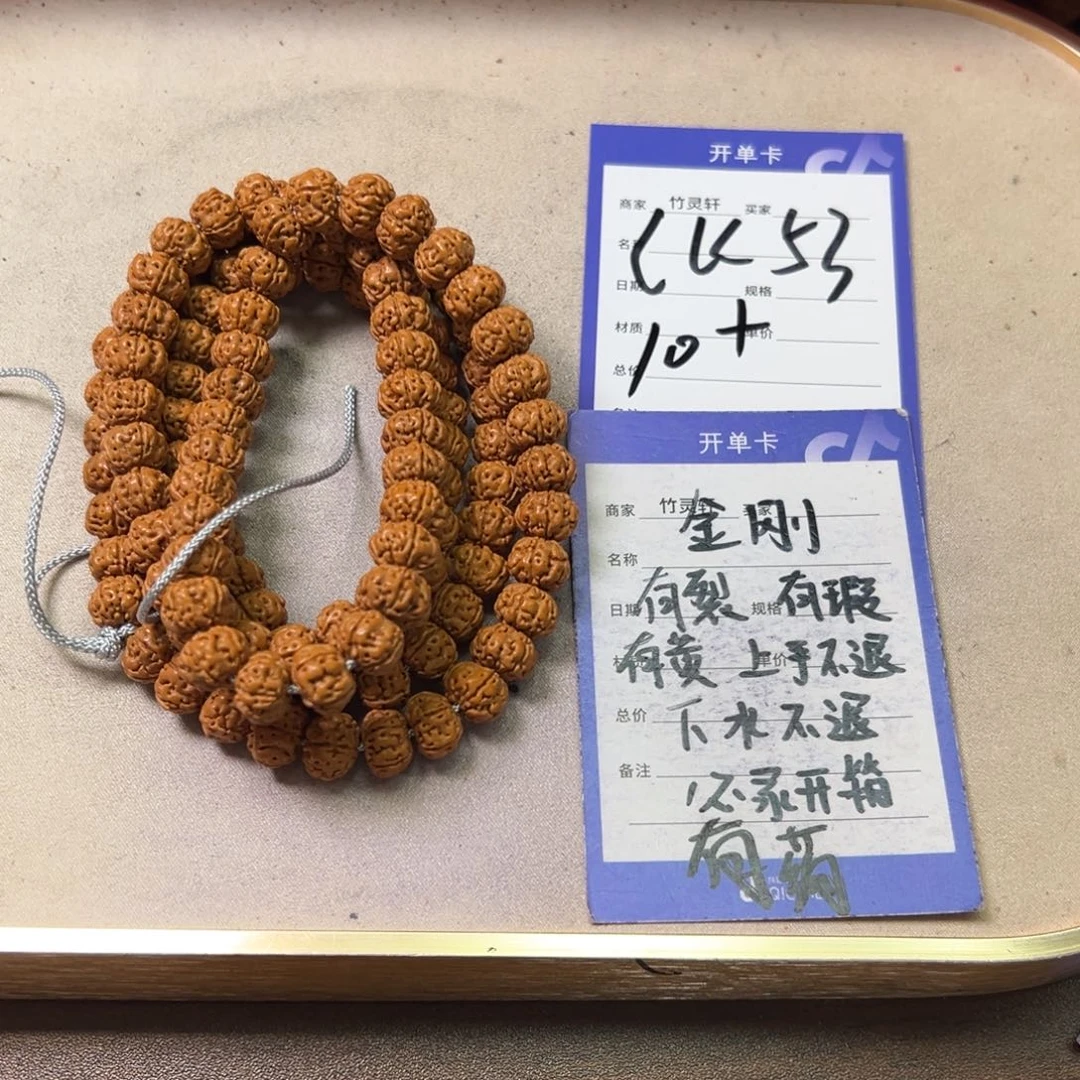 开单卡
商家 竹灵轩 买家
CK53
日期 规格
10+
材质 单价
开单卡
商家 竹灵轩
金刚
名称
有裂 有瑕
规格
有黄 上手不退
总价
下水不退
备注
必录开箱
有药